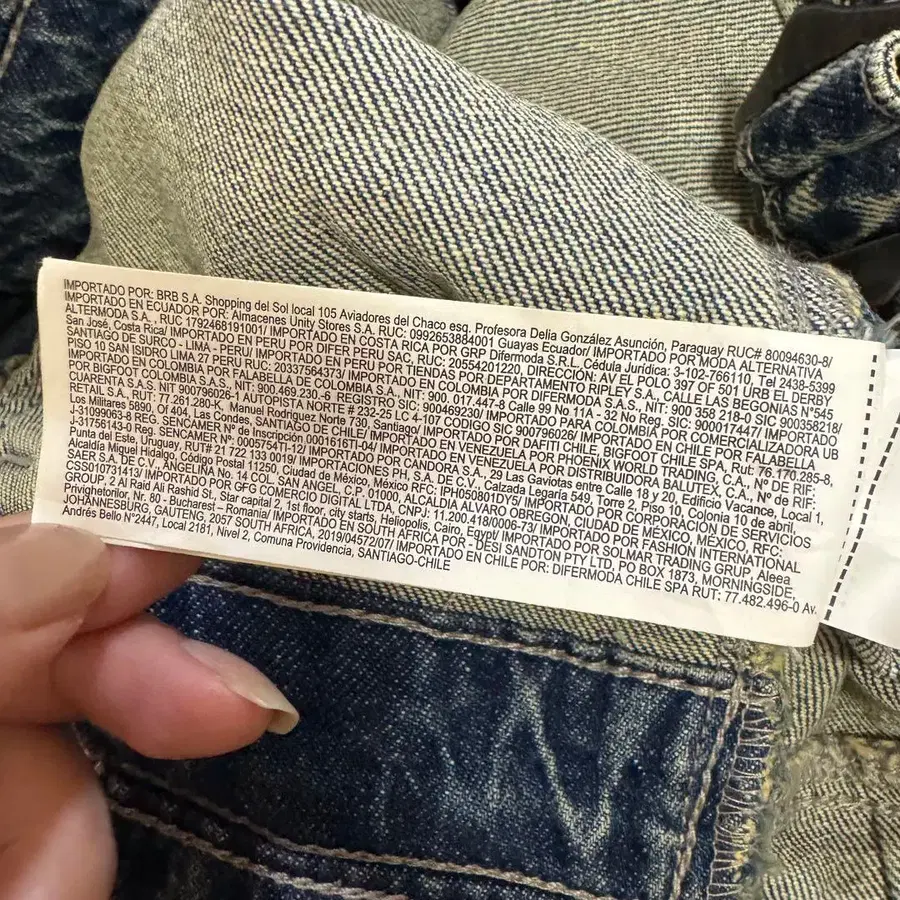 IMPORTADO POR: BRB S.A. Shopping del Sol local 105 Aviadores del Chaco esq. Profesora Delia González Asunción, Paraguay RUC# 80094630-8/
IMPORTADO EN ECUADOR POR: Almacenes Unity Stores S.A. RUC: 0992653884001 Guayas Ecuador/ IMPORTADO POR MODA ALTERNATIVA
ALTERMODA S.A., RUC 1792468191001/ IMPORTADO EN COSTA RICA POR GRP Difermoda S.R.L Cédula Jurídica: 3-102-766110, Tel 2438-5399
San José, Costa Rica/ IMPORTADO EN PERU POR DIFER PERU SAC, RUC: 20554201220, DIRECCION: AV EL POLO 397 OF 501 URB EL DERBY
SANTIAGO DE SURCO - LIMA - PERU/ IMPORTADO EN PERU POR TIENDAS POR DEPARTAMENTO RIPLEY S.A., CALLE LAS BEGONIAS N°545
PISO 10 SAN ISIDRO LIMA 27 PERU RUC: 20337564373/ IMPORTADO EN COLOMBIA POR DIFERMODA S.A.S., NIT: 900 358 218-0 SIC 900358218/
IMPORTADO EN COLOMBIA POR FALABELLA DE COLOMBIA S.A., NIT: 900. 017.447-8 Calle 99 No 11A - 32 No Reg. SIC: 900017447/ IMPORTADO
POR BIGFOOT COLOMBIA S.A.S., NIT: 900.469.230.-6 REGISTRO SIC: 900469230/ IMPORTADO PARA COLOMBIA POR COMERCIALIZADORA UB
CUARENTA S.A.S. NIT 900796026-1 AUTOPISTA NORTE # 232-25 LC 4-107 CODIGO SIC 900796026/ IMPORTADO EN CHILE POR FALABELLA
RETAIL S.A., RUT: 77.261.280-K, Manuel Rodriguez Norte 730, Santiago/ IMPORTADO POR DAFITI CHILE, BIGFOOT CHILE SPA, Rut: 76.770.285-8,
Los Militares 5890, Of 404, Las Condes, SANTIAGO DE CHILE/ IMPORTADO EN VENEZUELA POR PHOENIX WORLD TRADING, C.A., N° de RIF:
J-31099063-8 REG. SENCAMER N° de Inscripción 00016165TI-04/ IMPORTADO EN VENEZUELA POR DISTRIBUIDORA BALLUTEX, C.A., N° de RIF:
J-31756143-0 Reg. SENCAMER N°: 00057577I-12/ IMPORTADO POR PANDORA S.A., 29 Las Gaviotas entre Calle 18 y 20, Edificio Vacance, Local 1,
Punta del Este, Uruguay, RUT# 21 722 133 0019/ IMPORTACIONES PH, S.A. DE C.V., Calzada Legaría 549, Torre 2, Piso 10, Colonia 10 de abril,
Alcaldía Miguel Hidalgo, Código Postal 11250, Ciudad de México, México RFC: IPH050801DY5/ IMPORTADO POR CORPORACIÓN DE SERVICIOS
SAER S.A. DE C.V., ANGELINA No. 14 COL. SAN ANGEL, C.P. 01000, ALCALDIA ALVARO OBREGON, CIUDAD DE MÉXICO, MÉXICO, RFC:
GROUP, 2 Al Raid Al Rashid St., Star capital 2, 1st floor, city starts, Heliopolis, Cairo, Egypt/ IMPORTADO POR SOLMAR TRADING GRUP, Aleea
Privighetorilor, Nr. 80 - Bucharest – Romania/ IMPORTADO EN SOUTH AFRICA POR : DESI SANDTON PTY LTD, PO BOX 1873, MORNINGSIDE,
JOHANNESBURG, GAUTENG, 2057 SOUTH AFRICA, 2019/045720/07/ IMPORTADO EN CHILE POR: DIFERMODA CHILE SPA RUT: 77.482.496-0 Av.
Andrés Bello N°2447, Local 2181, Nivel 2, Comuna Providencia, SANTIAGO-CHILE